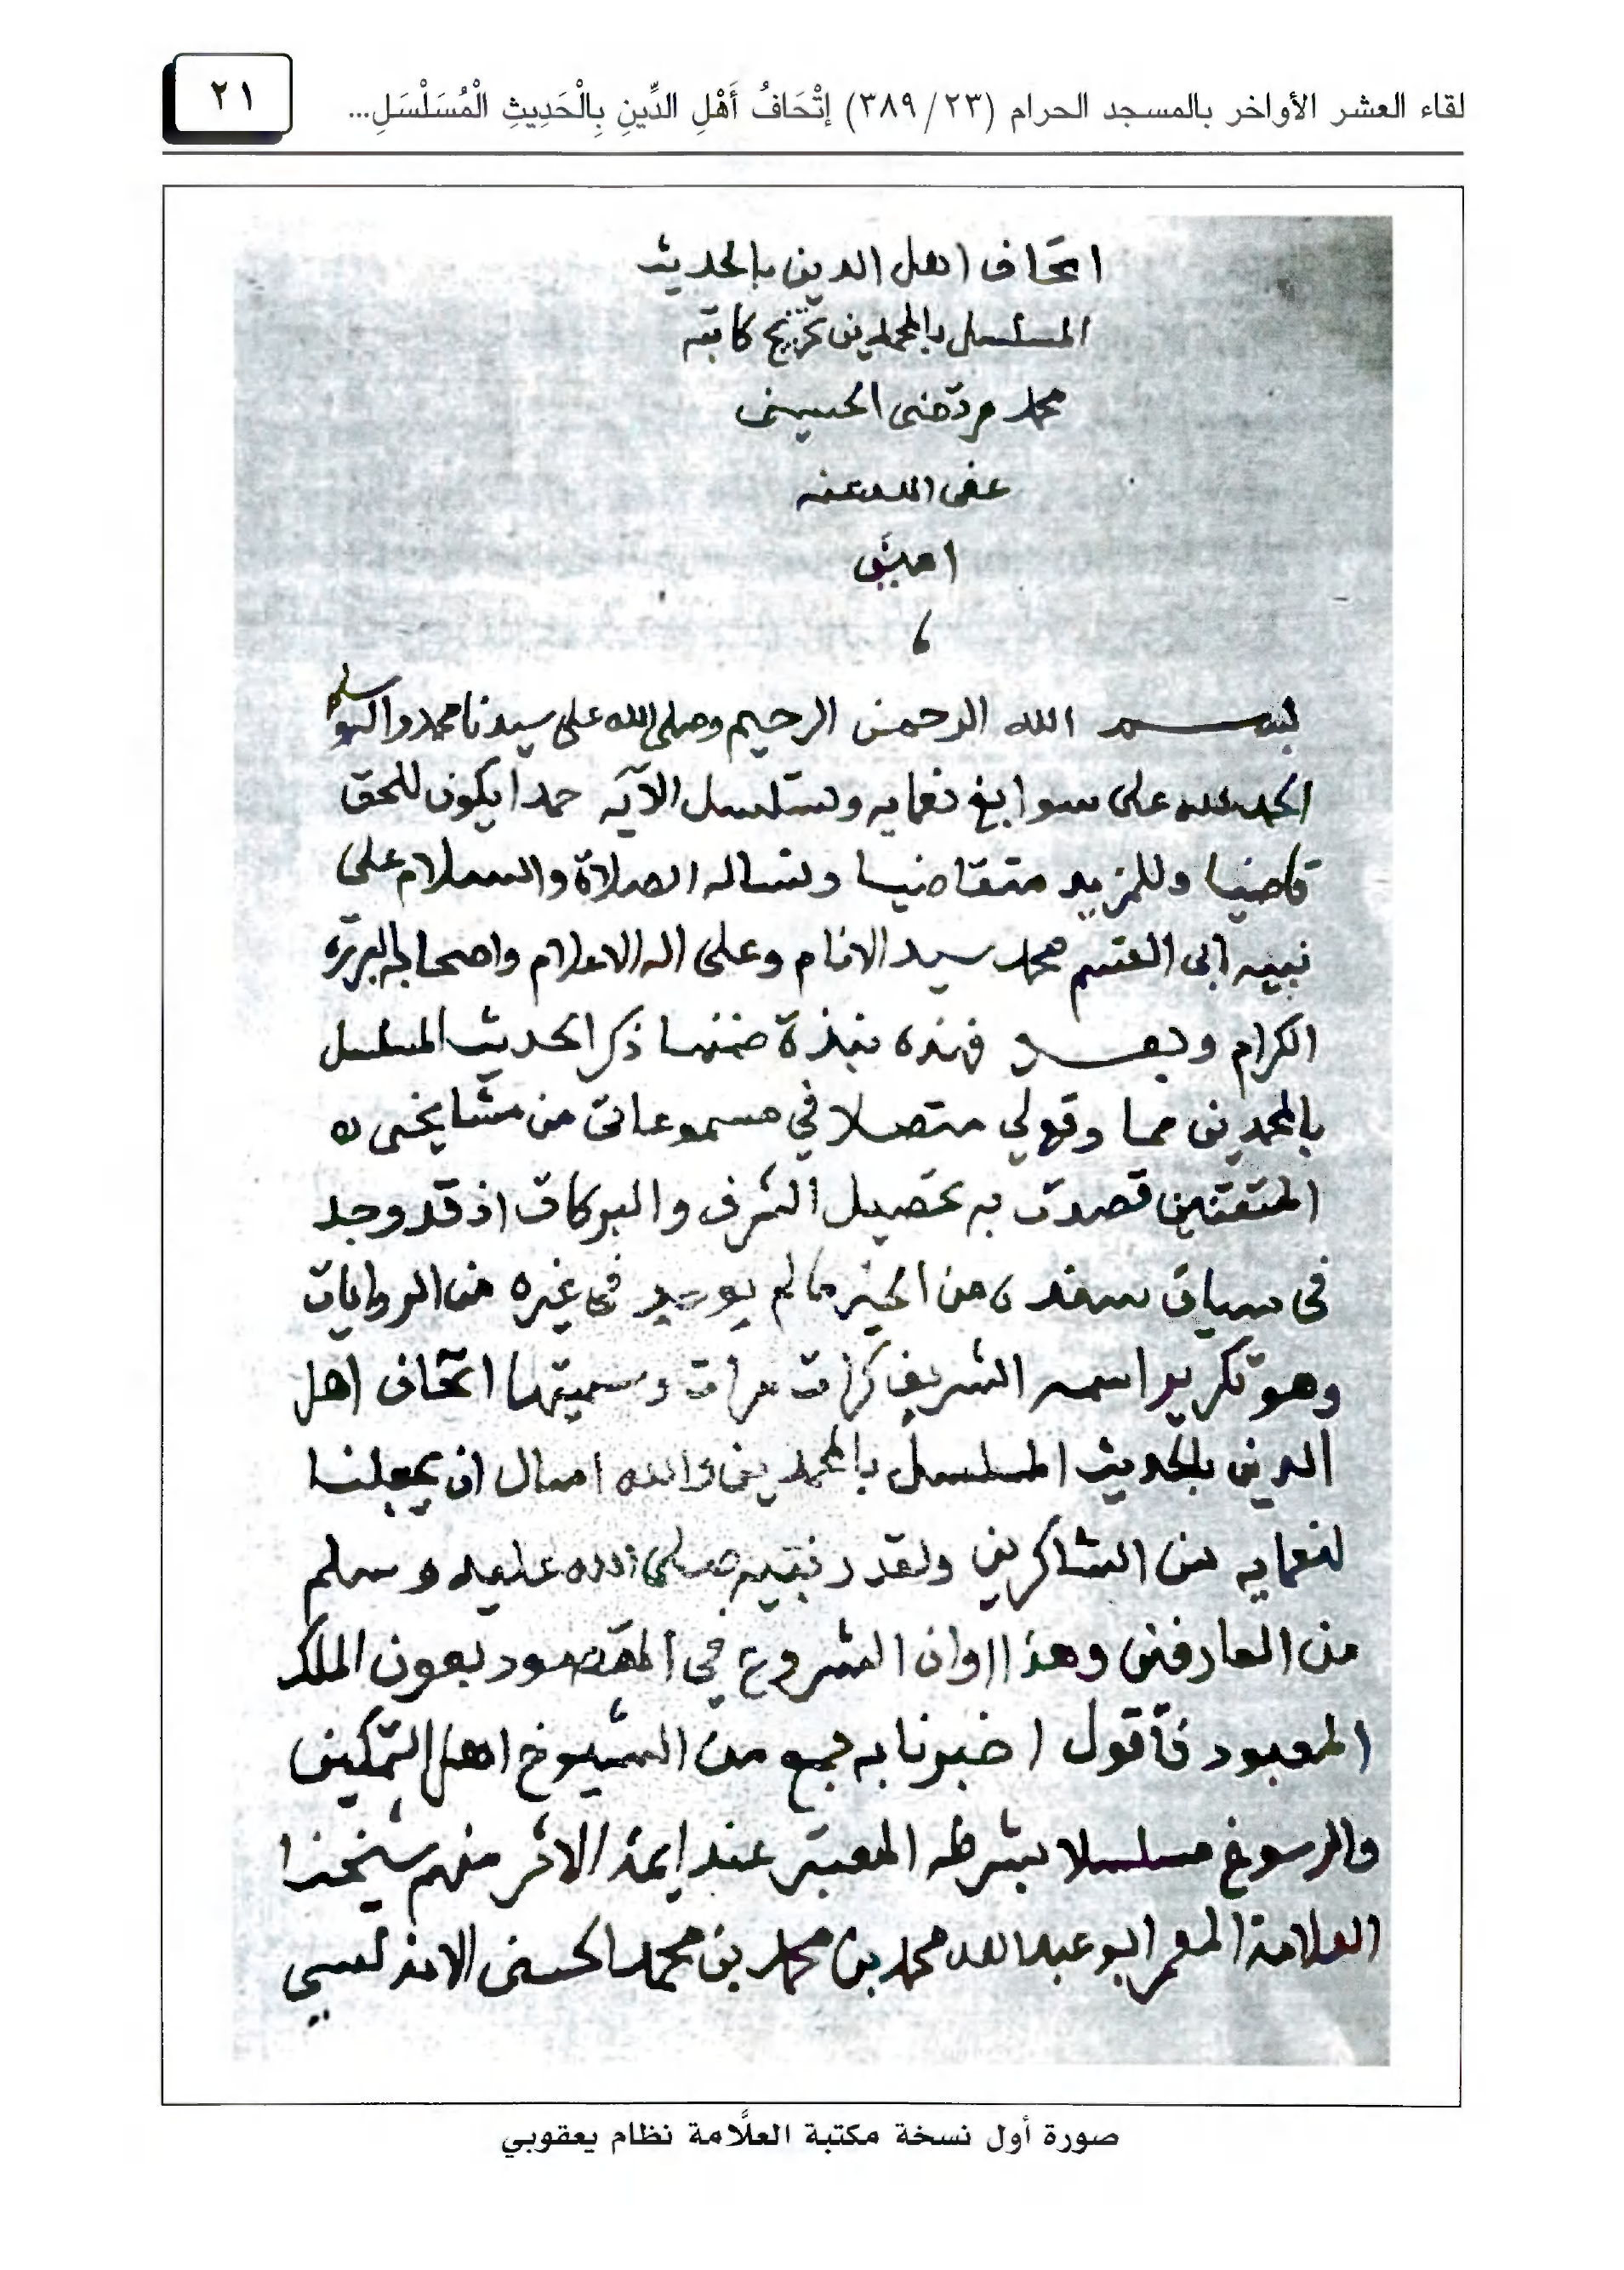 لقاء العشر الأواخر بالمسجد الحرام (٢٣/ ٣٨٩) إتْحَافُ أَهْلِ الدِّينِ بِالْحَدِيثِ الْمُسَلْسَلِ...
٢١
اتحاف اهل الدين بالحديث
المسلسل بالمحمدين تخريج كاتبه
محمد مرتضى الحسيني
عفى الله عنه
امين
بسم الله الرحمن الرحيم وصلى الله على سيدنا محمد واله وسلم
الحمد لله على سوابغ نعمايه وتسلسل الآيه حمدا يكون للحق
قاضيا وللمزيد متقاضيا ونساله الصلاة والسلام على
نبيه ابى القسم محمد سيد الانام وعلى اله الاعلام واصحابه البررة
الكرام وبعد فهذه نبذة ضمنها ذكر الحديث المسلسل
بالمحمدين مما وقع لي متصلا في مسموعاتى من مشايخى
المتقنين قصدت به تحصيل الشرف والبركات اذ قد وجد
فى سياق سنده من الخير ما لم يوجد فى غيره من الروايات
وهو تكرير اسمه الشريف كرات مرات وسميتها اتحاف اهل
الدين بالحديث المسلسل بالمحمدين والله اسال ان يجعلنا
لنعمايه من الشاكرين ولقدر نبيه صلى الله عليه وسلم
من العارفين وهذا اوان الشروع في المقصود بعون الملك
المعبود فأقول اخبرنا به جمع من الشيوخ اهل التمكين
والرسوخ مسلسلا بشرطه المعتبر عند ايمة الاثر منهم شيخنا
العلامة المعمر ابو عبد الله محمد بن محمد بن محمد الحسنى الاندلسي
صورة أول نسخة مكتبة العلَّامة نظام يعقوبي